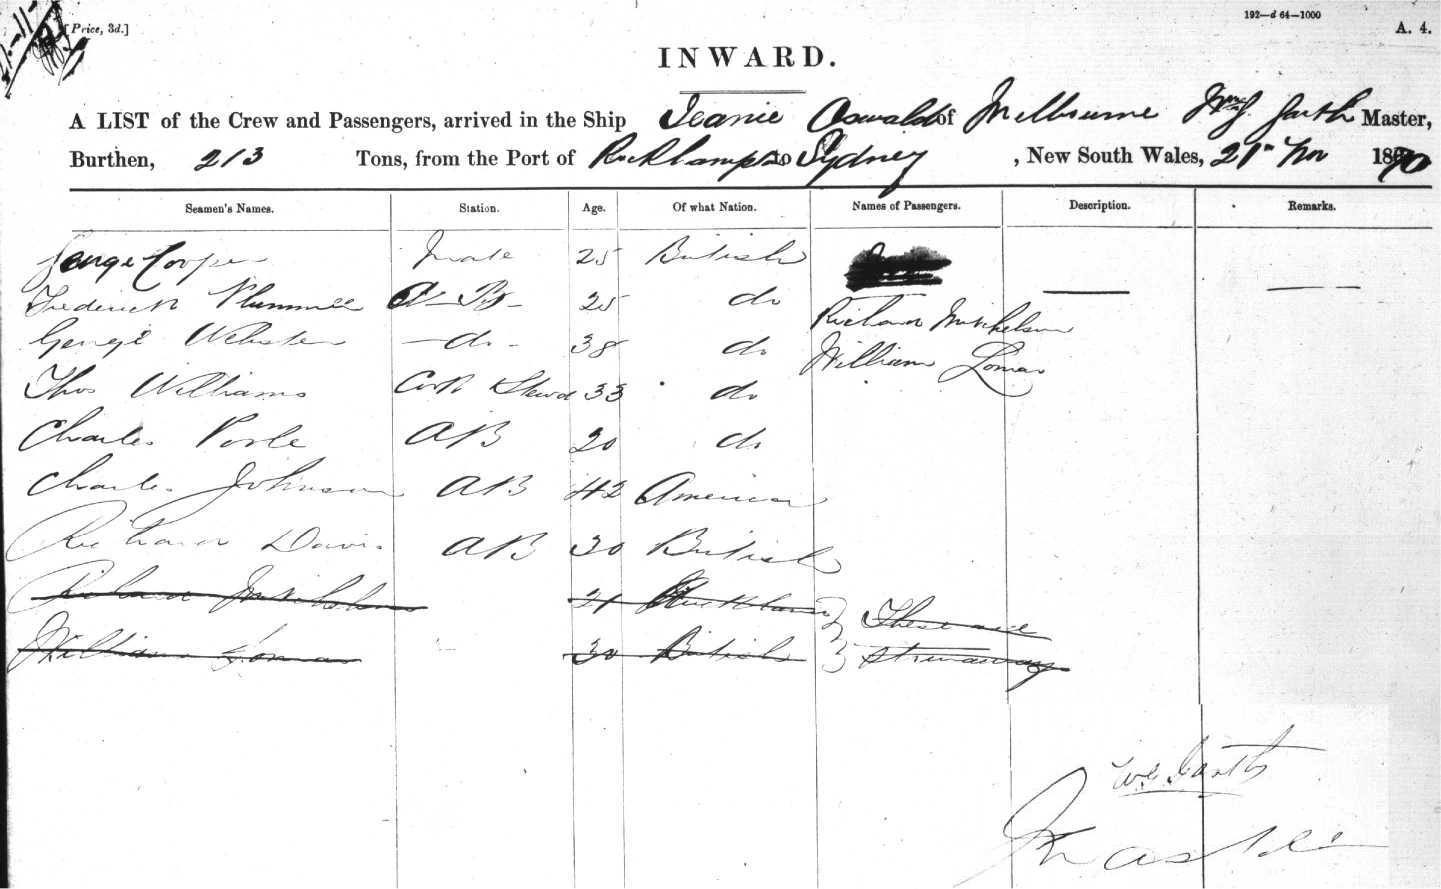 21-11-
[Price, 3d.]
192—d 64—1000
A. 4.
INWARD.
A LIST of the Crew and Passengers, arrived in the Ship Jeanie Oswald of Melbourne Garth Master,
Burthen, 213 Tons, from the Port of Rockhampton to Sydney, New South Wales, 21st Nov 1870
Seamen's Names. Station. Age. Of what Nation. Names of Passengers. Description. Remarks.
George Cooper Mate 25 British
Frederick Plummer AB 25 do
Richard Mitchelson
George Webster do 38 do
William Lomas
Thos Williams Cook Stewd 33 do
Charles Poole AB 20 do
Charles Johnson AB 42 American
Richard Davis AB 30 British
Richard 21
William Lomas 30 British
These are
Stowaways
W. Garth
Master